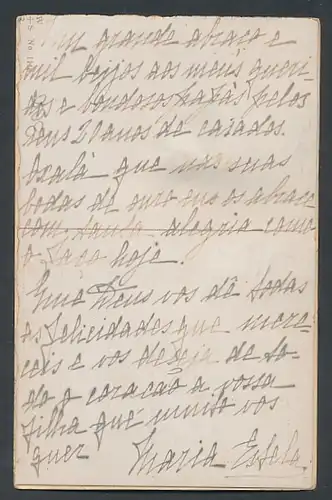 Um grande abraço e
mil beijos aos meus queri-
dos e bondosos papás pelos
seus 20 anos de casados.
Oxalá que nas suas
bodas de ouro eu os abrace
com tanta alegria como
o faço hoje.
Que Deus vos dê todas
as felicidades que mere-
ceis e vos deseja de to-
do o coracão a vossa
filha que muito vos
quer
Maria Estela.